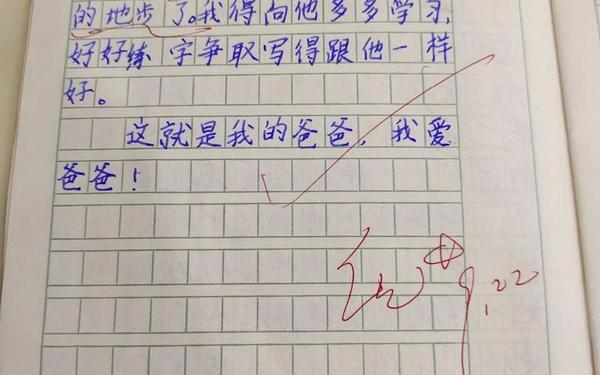 的地步了。我得向他多多学习,
好好练字争取写得跟他一样
好。
这就是我的爸爸,我爱
爸爸!
9.22